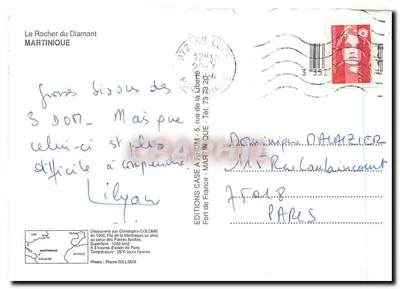 Le Rocher du Diamant
MARTINIQUE
Grosses bisous des
3 DOM. Mais que
celui-ci est plus
difficile à comprendre
Lilyan
Découverte par Christophe COLOMB
en 1502, l'île de la Martinique se situe
au cœur des Petites Antilles.
Superficie : 1080 km2
A 8 heures d'avion de Paris
Température : 26°C toute l'année
Photo : Pierre GILLOUX
EDITIONS CASE A - 5, rue de la Liberté
Fort de France - MARTINIQUE - Tél. 73 73 20
Dominique
rue Caulaincourt
75018
PARIS